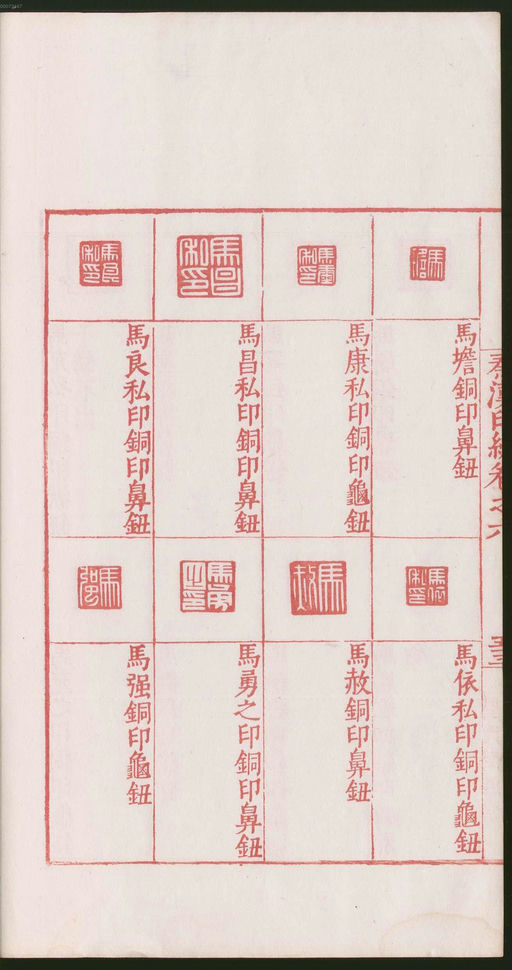 馬墖銅印鼻鈕
馬康私印銅印龜鈕
馬昌私印銅印鼻鈕
馬良私印銅印鼻鈕
馬依私印銅印龜鈕
馬赦銅印鼻鈕
馬勇之印銅印鼻鈕
馬强銅印龜鈕